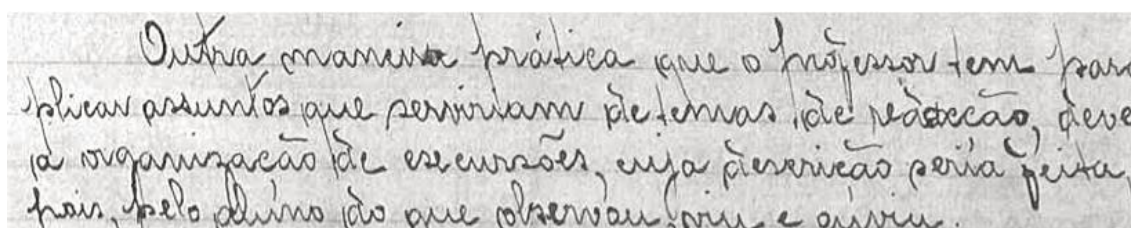 Outra maneira prática que o professor tem para
plicar assuntos que serviriam de temas de redacção, deve
a organização de escursões, cuja descrição seria feita,
pois, pelo aluno do que observou, viu e ouviu.